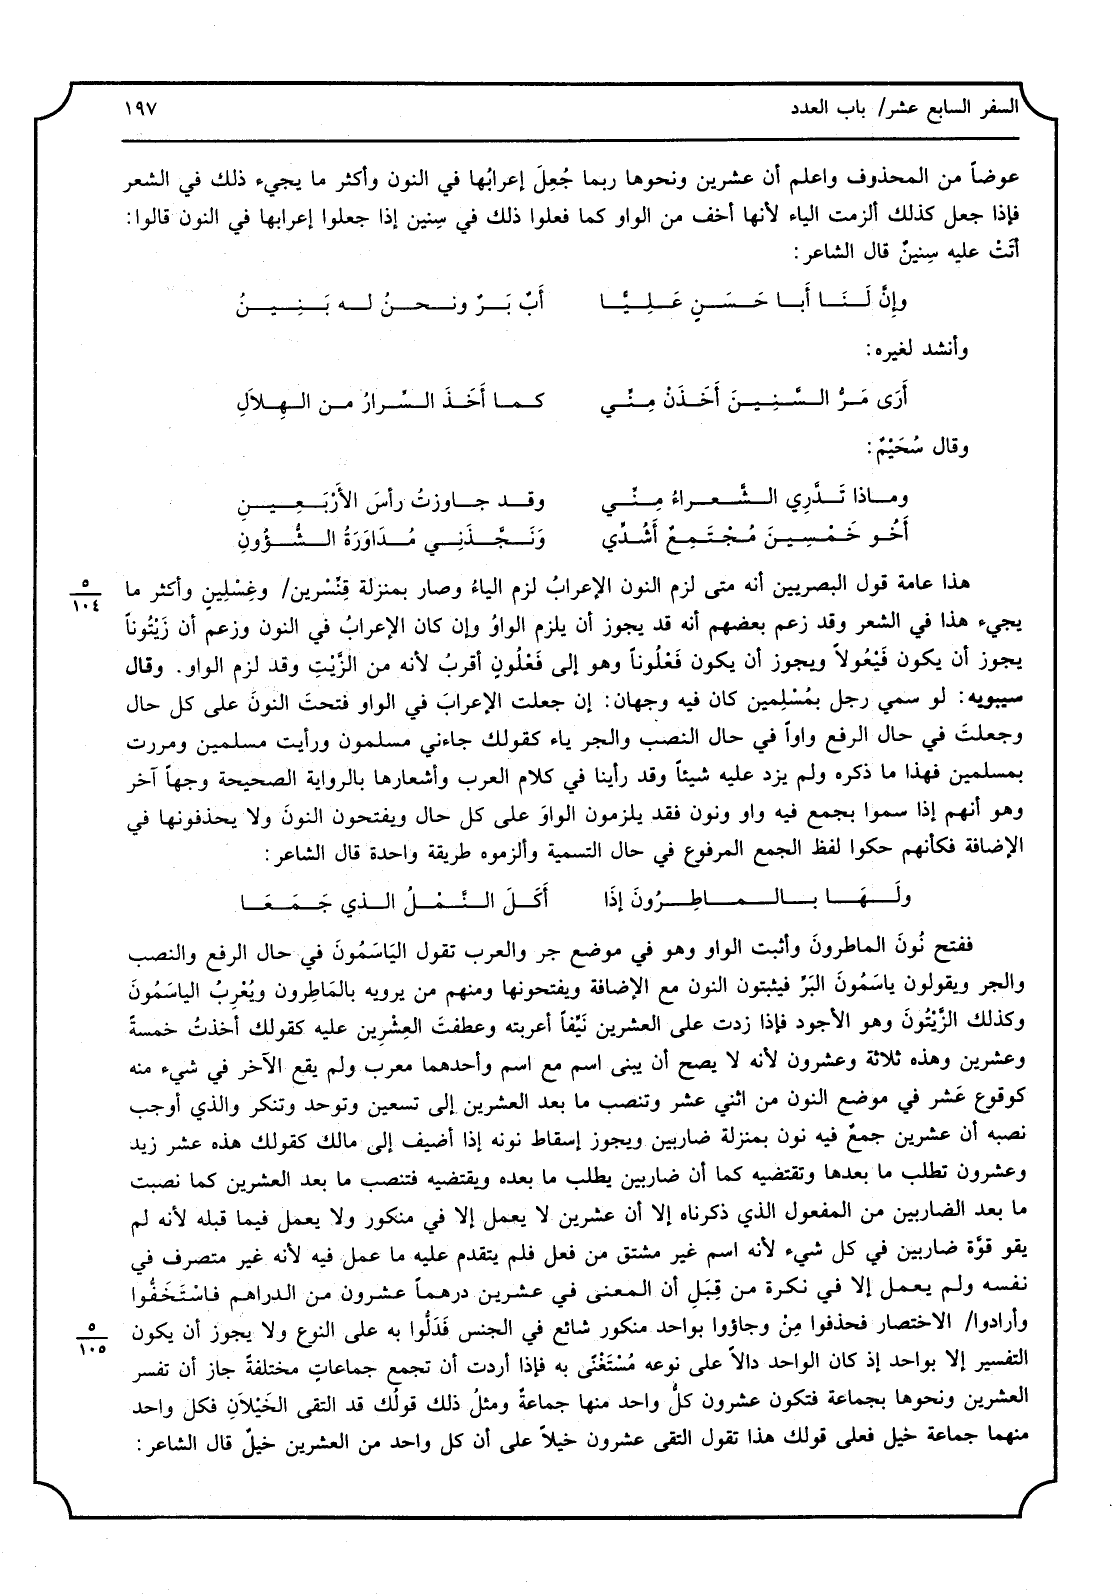 السفر السابع عشر/ باب العدد ١٩٧
عوضاً من المحذوف واعلم أن عشرين ونحوها ربما جُعِلَ إعرابُها في النون وأكثر ما يجيء ذلك في الشعر
فإذا جعل كذلك ألزمت الياء لأنها أخف من الواو كما فعلوا ذلك في سِنين إذا جعلوا إعرابها في النون قالوا:
أتَتْ عليه سِنينٌ قال الشاعر:
وإنَّ لَنَا أَبا حَسَنٍ عَلِيًّا أَبٌ بَرٌ ونحنُ له بَنِينُ
وأنشد لغيره:
أَرَى مَرُّ السِّنِينَ أَخَذَنْ مِنِّي كما أَخَذَ السِّرارُ من الهِلاَلِ
وقال سُحَيْمٌ:
وماذا تَدَّرِي الشُّعراءُ مِنِّي وقد جاوزتُ رأسَ الأَرْبَعِينِ
أَخُو خَمْسِينَ مُجْتَمِعٌ أَشُدِّي وَنَجَّذَنِي مُدَاوَرَةُ الشُّؤُونِ
هذا عامة قول البصريين أنه متى لزم النون الإعرابُ لزم الياءُ وصار بمنزلة قِنِّسْرين/ وغِسْلِينٍ وأكثر ما
٥
١٠٤
يجيء هذا في الشعر وقد زعم بعضهم أنه قد يجوز أن يلزم الواوُ وإن كان الإعرابُ في النون وزعم أن زَيْتُوناً
يجوز أن يكون فَيْعُولاً ويجوز أن يكون فَعْلُوناً وهو إلى فَعْلُونٍ أقربُ لأنه من الزَّيْتِ وقد لزم الواو. وقال
سيبويه: لو سمي رجل بمُسْلِمين كان فيه وجهان: إن جعلت الإعرابَ في الواو فتحتَ النونَ على كل حال
وجعلتَ في حال الرفع واواً في حال النصب والجر ياء كقولك جاءني مسلمون ورأيت مسلمين ومررت
بمسلمين فهذا ما ذكره ولم يزد عليه شيئاً وقد رأينا في كلام العرب وأشعارها بالرواية الصحيحة وجهاً آخر
وهو أنهم إذا سموا بجمع فيه واو ونون فقد يلزمون الواوَ على كل حال ويفتحون النونَ ولا يحذفونها في
الإضافة فكأنهم حكوا لفظ الجمع المرفوع في حال التسمية وألزموه طريقة واحدة قال الشاعر:
ولَهَا بالماطِرُونَ إذَا أَكَلَ النَّمْلُ الذي جَمَعَا
ففتح نُونَ الماطرونَ وأثبت الواو وهو في موضع جر والعرب تقول اليَاسَمُونَ في حال الرفع والنصب
والجر ويقولون ياسَمُونَ البَرِّ فيثبتون النون مع الإضافة ويفتحونها ومنهم من يرويه بالمَاطِرون ويُعْرِبُ الياسَمُونَ
وكذلك الزَّيْتُونَ وهو الأجود فإذا زدت على العشرين نَيِّفاً أعربته وعطفتَ العِشْرِين عليه كقولك أخذتُ خمسةً
وعشرين وهذه ثلاثة وعشرون لأنه لا يصح أن يبنى اسم مع اسم وأحدهما معرب ولم يقع الآخر في شيء منه
كوقوع عَشر في موضع النون من اثني عشر وتنصب ما بعد العشرين إلى تسعين وتوحد وتنكر والذي أوجب
نصبه أن عشرين جمعٌ فيه نون بمنزلة ضاربين ويجوز إسقاط نونه إذا أضيف إلى مالك كقولك هذه عشر زيد
وعشرون تطلب ما بعدها وتقتضيه كما أن ضاربين يطلب ما بعده ويقتضيه فتنصب ما بعد العشرين كما نصبت
ما بعد الضاربين من المفعول الذي ذكرناه إلا أن عشرين لا يعمل إلا في منكور ولا يعمل فيما قبله لأنه لم
يقو قوَّة ضاربين في كل شيء لأنه اسم غير مشتق من فعل فلم يتقدم عليه ما عمل فيه لأنه غير متصرف في
نفسه ولم يعمل إلا في نكرة من قِبَلِ أن المعنى في عشرين درهماً عشرون من الدراهم فاسْتَخَفُّوا
وأرادوا/ الاختصار فحذفوا مِنْ وجاؤوا بواحد منكور شائع في الجنس فَدَلُّوا به على النوع ولا يجوز أن يكون
٥
١٠٥
التفسير إلا بواحد إذ كان الواحد دالاً على نوعه مُسْتَغْنًى به فإذا أردت أن تجمع جماعاتٍ مختلفةً جاز أن تفسر
العشرين ونحوها بجماعة فتكون عشرون كلُّ واحد منها جماعةً ومثلُ ذلك قولُك قد التقى الخَيْلاَنِ فكل واحد
منهما جماعة خيل فعلى قولك هذا تقول التقى عشرون خيلاً على أن كل واحد من العشرين خيلٌ قال الشاعر: